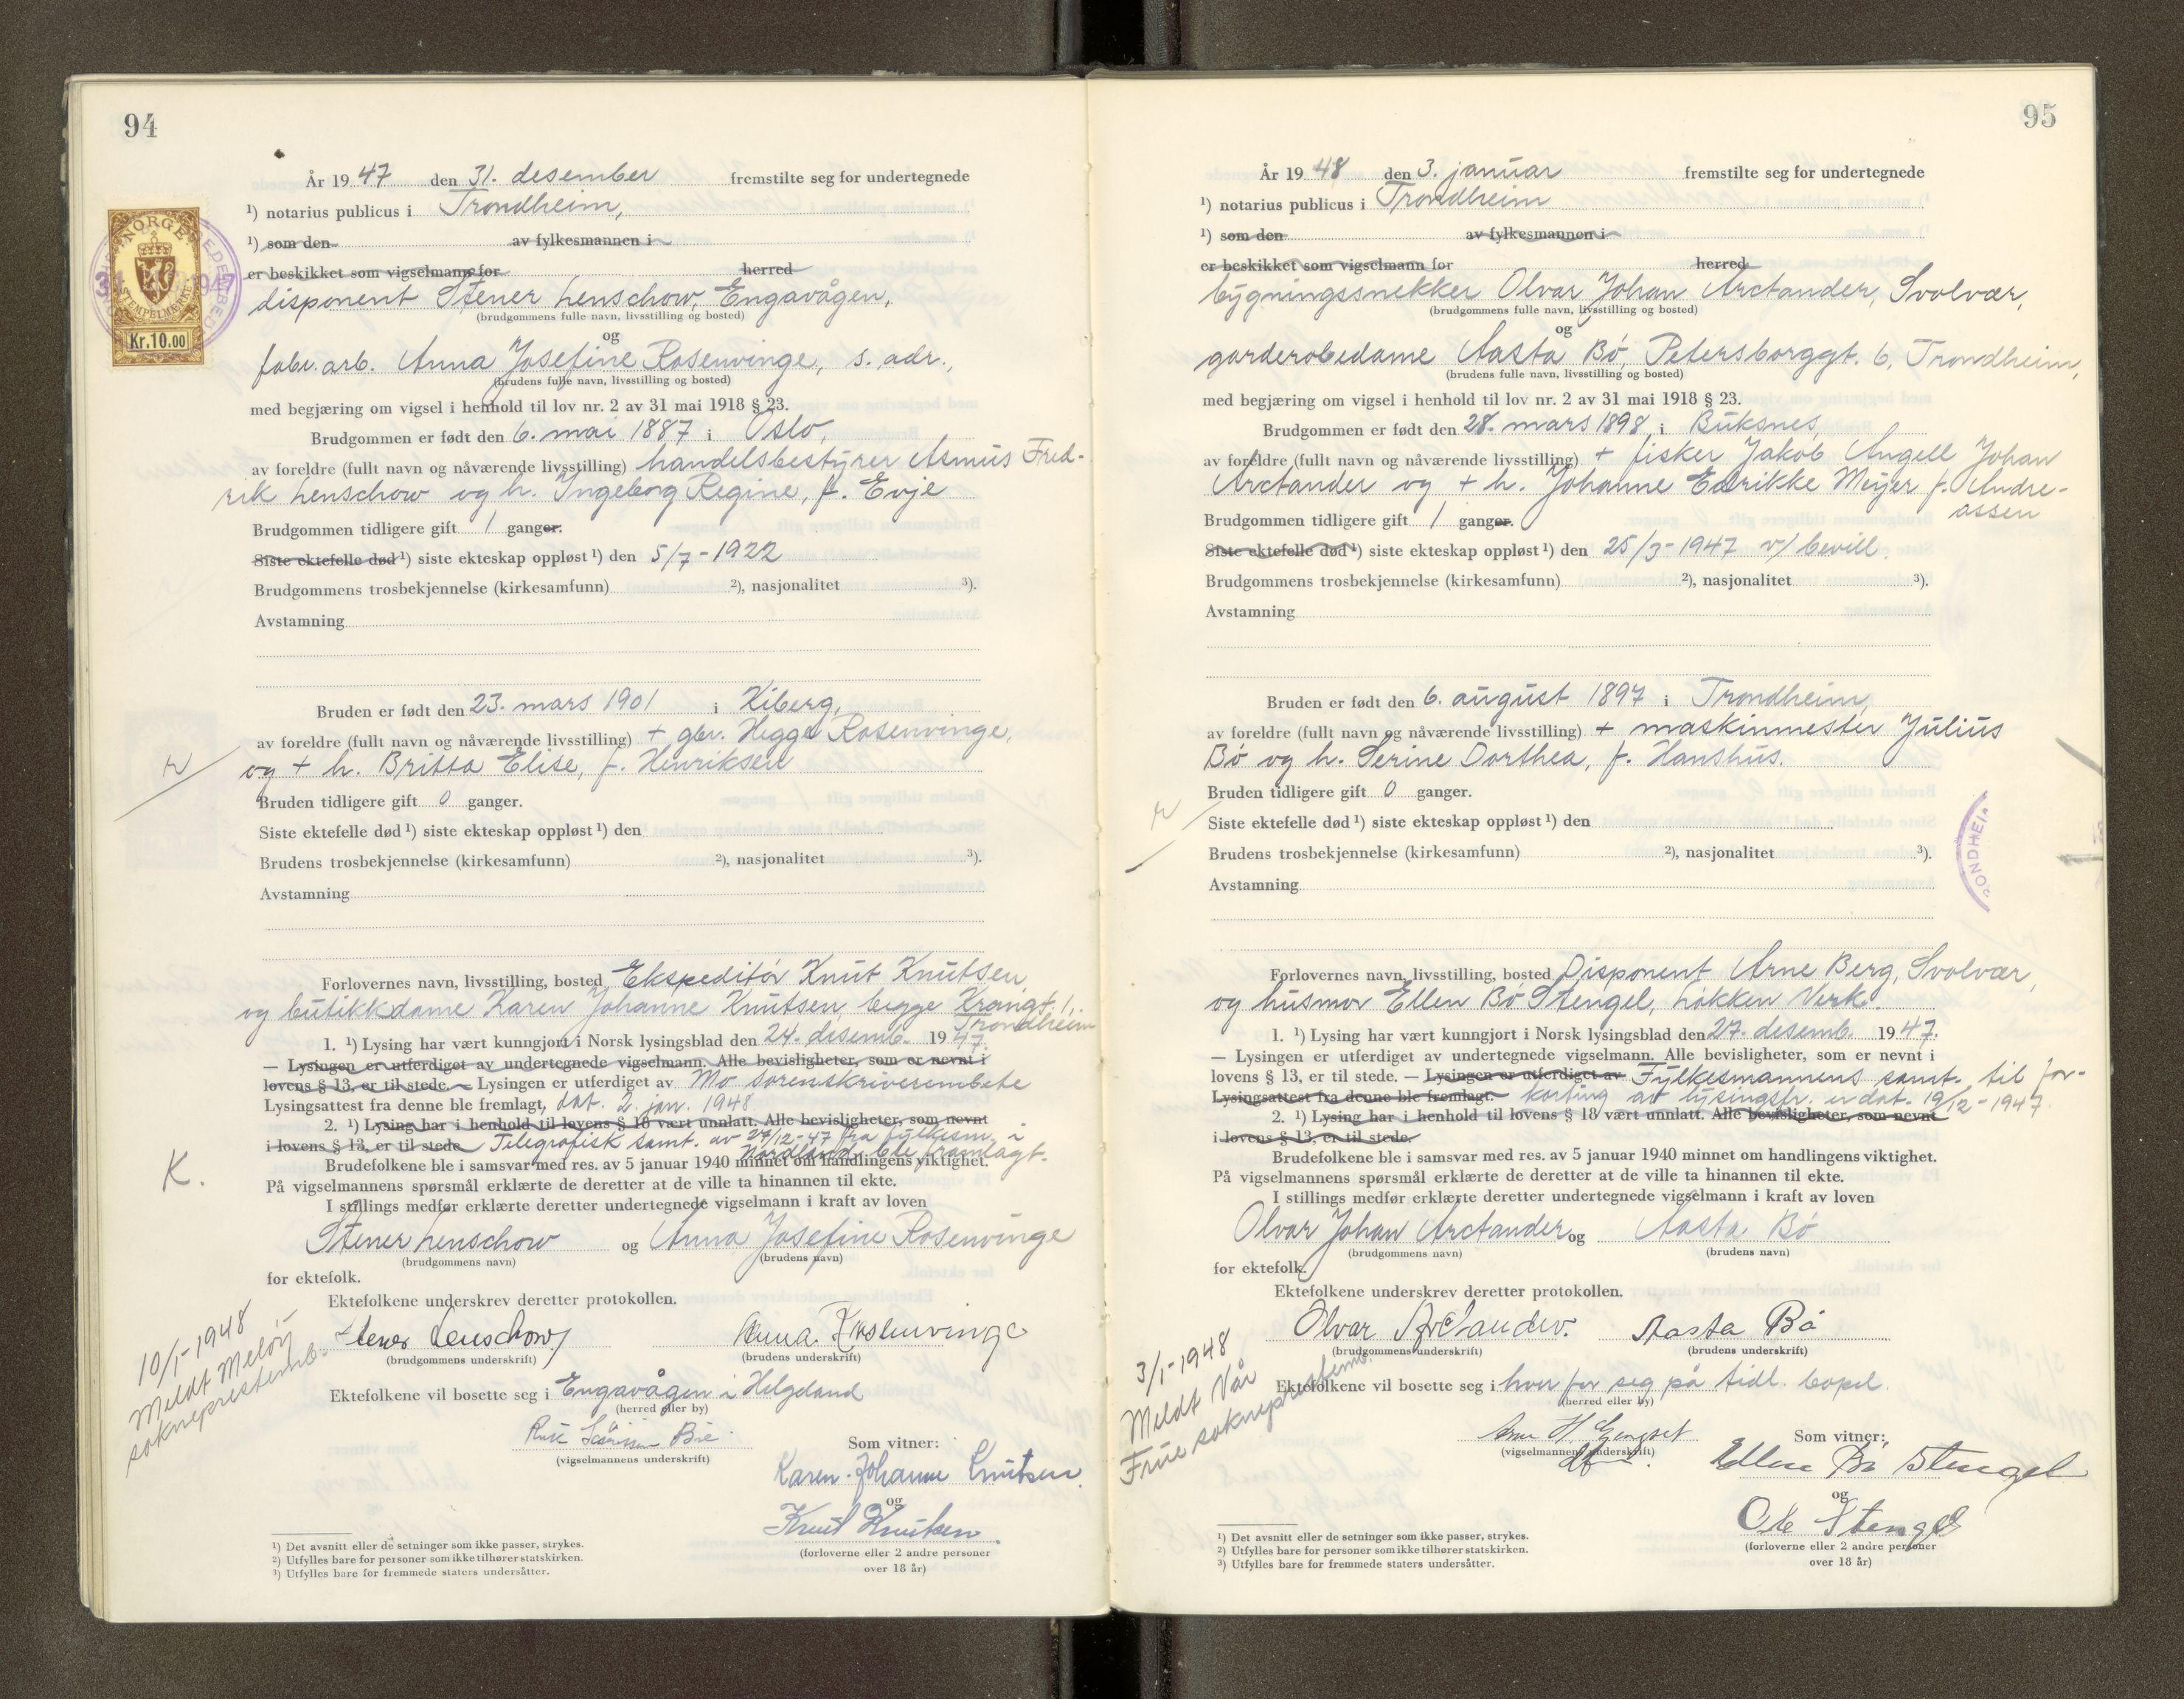 94
År 1947 den 31. desember fremstilte seg for undertegnede
¹) notarius publicus i Trondheim,
¹) som den av fylkesmannen i
er beskikket som vigselmann for herred
NORGE
STEMPELMERKE
Kr.10.00
disponent Stener Lenschow, Engavågen,
(brudgommens fulle navn, livsstilling og bosted)
og
fabr. arb. Anna Josefine Rosenvinge, s. adr.,
(brudens fulle navn, livsstilling og bosted)
med begjæring om vigsel i henhold til lov nr. 2 av 31 mai 1918 § 23.
Brudgommen er født den 6. mai 1887 i Oslo,
av foreldre (fullt navn og nåværende livsstilling) handelsbestyrer Asmus Fred-
rik Lenschow og h. Ingeborg Regine, f. Evje
Brudgommen tidligere gift 1 ganger.
Siste ektefelle død ¹) siste ekteskap oppløst ¹) den 5/7-1922
Brudgommens trosbekjennelse (kirkesamfunn) ²), nasjonalitet ³).
Avstamning
Bruden er født den 23. mars 1901 i Kiberg,
av foreldre (fullt navn og nåværende livsstilling) + gbr. Hegge Rosenvinge,
og + h. Britta Elise, f. Henriksen
Bruden tidligere gift 0 ganger.
Siste ektefelle død ¹) siste ekteskap oppløst ¹) den
Brudens trosbekjennelse (kirkesamfunn) ²), nasjonalitet ³).
Avstamning
Forlovernes navn, livsstilling, bosted Ekspeditør Knut Knutsen,
og butikkdame Karen Johanne Knutsen, begge Krangt. 1,
Trondheim
1. ¹) Lysing har vært kunngjort i Norsk lysingsblad den 24. desemb. 1947.
— Lysingen er utferdiget av undertegnede vigselmann. Alle bevisligheter, som er nevnt i
lovens § 13, er til stede. — Lysingen er utferdiget av Mo sorenskriverembete
Lysingsattest fra denne ble fremlagt, dat. 2. jan. 1948
2. ¹) Lysing har i henhold til lovens § 18 vært unnlatt. Alle bevisligheter, som nevnt
i lovens § 13, er til stede. Telegrafisk samt. av 27/12-47 fra fylkesm. i
Nordland ble framlagt.
Brudefolkene ble i samsvar med res. av 5 januar 1940 minnet om handlingens viktighet.
K.
På vigselmannens spørsmål erklærte de deretter at de ville ta hinannen til ekte.
I stillings medfør erklærte deretter undertegnede vigselmann i kraft av loven
Stener Lenschow og Anna Josefine Rosenvinge
(brudgommens navn) (brudens navn)
for ektefolk.
Ektefolkene underskrev deretter protokollen.
Stener Lenschow Anna Rosenvinge
(brudgommens underskrift) (brudens underskrift)
10/1-1948
Meldt Meløy
sokneprestemb.
Ektefolkene vil bosette seg i Engavågen i Helgeland
(herred eller by)
(vigselmannens underskrift)
Som vitner:
Karen Johanne Knutsen
og
Knut Knutsen
(forloverne eller 2 andre personer
over 18 år)
¹) Det avsnitt eller de setninger som ikke passer, strykes.
²) Utfylles bare for personer som ikke tilhører statskirken.
³) Utfylles bare for fremmede staters undersåtter.
95
År 1948 den 3. januar fremstilte seg for undertegnede
¹) notarius publicus i Trondheim
¹) som den av fylkesmannen i
er beskikket som vigselmann for herred
bygningssnekker Olvar Johan Arctander, Svolvær,
(brudgommens fulle navn, livsstilling og bosted)
og
garderobedame Aasta Bø, Petersborggt. 6, Trondheim,
(brudens fulle navn, livsstilling og bosted)
med begjæring om vigsel i henhold til lov nr. 2 av 31 mai 1918 § 23.
Brudgommen er født den 28. mars 1898 i Buksnes,
av foreldre (fullt navn og nåværende livsstilling) + fisker Jakob Angell Johan
Arctander og + h. Johanne Edrikke Meyer f. Andre-
assen
Brudgommen tidligere gift 1 ganger.
Siste ektefelle død ¹) siste ekteskap oppløst ¹) den 25/3-1947 v/ bevill.
Brudgommens trosbekjennelse (kirkesamfunn) ²), nasjonalitet ³).
Avstamning
Bruden er født den 6. august 1897 i Trondheim,
av foreldre (fullt navn og nåværende livsstilling) + maskinmester Julius
Bø og h. Serine Dorthea, f. Hanshus.
Bruden tidligere gift 0 ganger.
Siste ektefelle død ¹) siste ekteskap oppløst ¹) den
Brudens trosbekjennelse (kirkesamfunn) ²), nasjonalitet ³).
Avstamning
Forlovernes navn, livsstilling, bosted Disponent Arne Berg, Svolvær,
og husmor Ellen Bø Stengel, Løkken Verk.
1. ¹) Lysing har vært kunngjort i Norsk lysingsblad den 27. desemb. 1947.
— Lysingen er utferdiget av undertegnede vigselmann. Alle bevisligheter, som er nevnt i
lovens § 13, er til stede. — Lysingen er utferdiget av Fylkesmannens samt. til for-
Lysingsattest fra denne ble fremlagt. — korting av lysingsfr. er dat. 19/12-1947
2. ¹) Lysing har i henhold til lovens § 18 vært unnlatt. Alle bevisligheter, som nevnt
i lovens § 13, er til stede.
Brudefolkene ble i samsvar med res. av 5 januar 1940 minnet om handlingens viktighet.
På vigselmannens spørsmål erklærte de deretter at de ville ta hinannen til ekte.
I stillings medfør erklærte deretter undertegnede vigselmann i kraft av loven
Olvar Johan Arctander og Aasta Bø
(brudgommens navn) (brudens navn)
for ektefolk.
Ektefolkene underskrev deretter protokollen.
Olvar Arctander. Aasta Bø
(brudgommens underskrift) (brudens underskrift)
3/1-1948
Meldt Vår
Frue sokneprestemb.
Ektefolkene vil bosette seg i hver for seg på tidl. bopel.
(herred eller by)
(vigselmannens underskrift)
Som vitner:
Ellen Bø Stengel
og
Stengel
(forloverne eller 2 andre personer
over 18 år)
¹) Det avsnitt eller de setninger som ikke passer, strykes.
²) Utfylles bare for personer som ikke tilhører statskirken.
³) Utfylles bare for fremmede staters undersåtter.